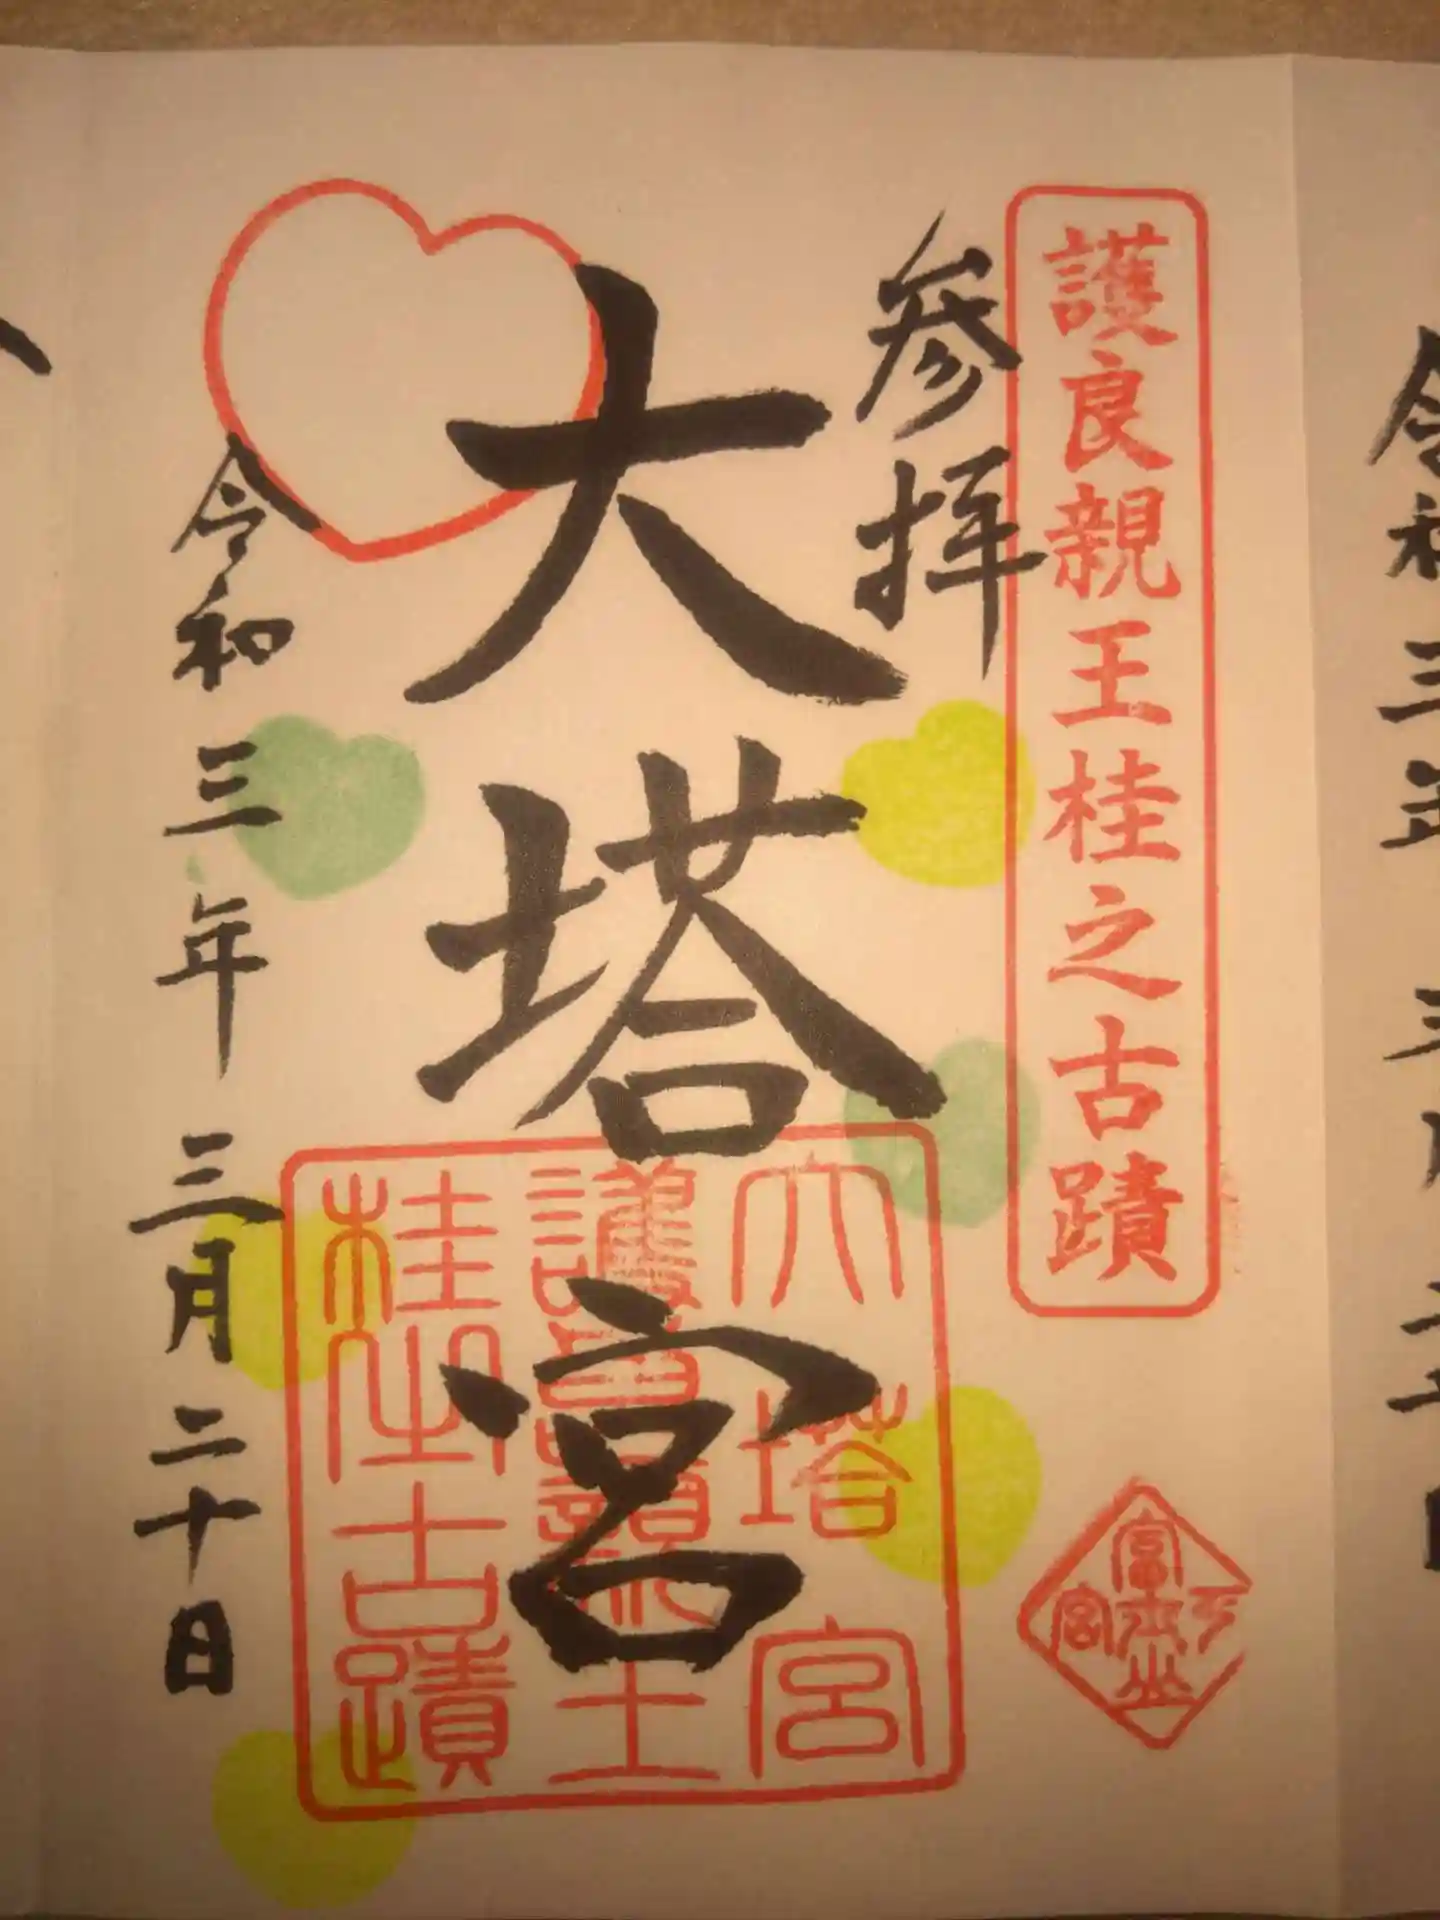 護良親王桂之古蹟
参拝
大塔宮
令和三年三月二十日
大塔宮
護良親王
桂之古蹟
令和三年